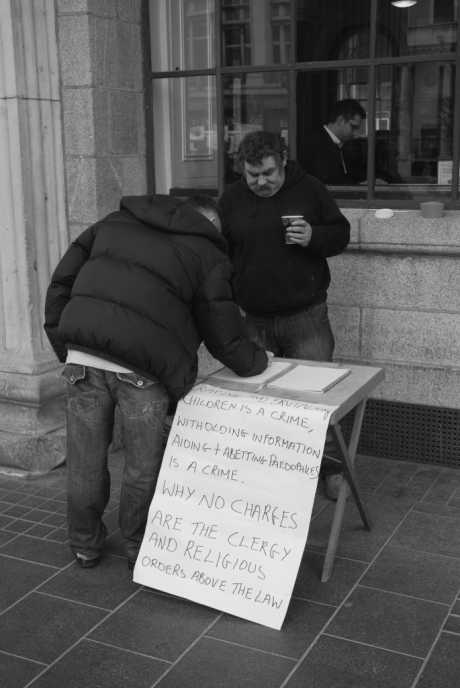 CHILDREN IS A CRIME,
WITHOLDING INFORMATION
AIDING + ABETTING PAEDOPHILES
IS A CRIME.
WHY NO CHARGES
ARE THE CLERGY
AND RELIGIOUS
ORDERS ABOVE THE LAW